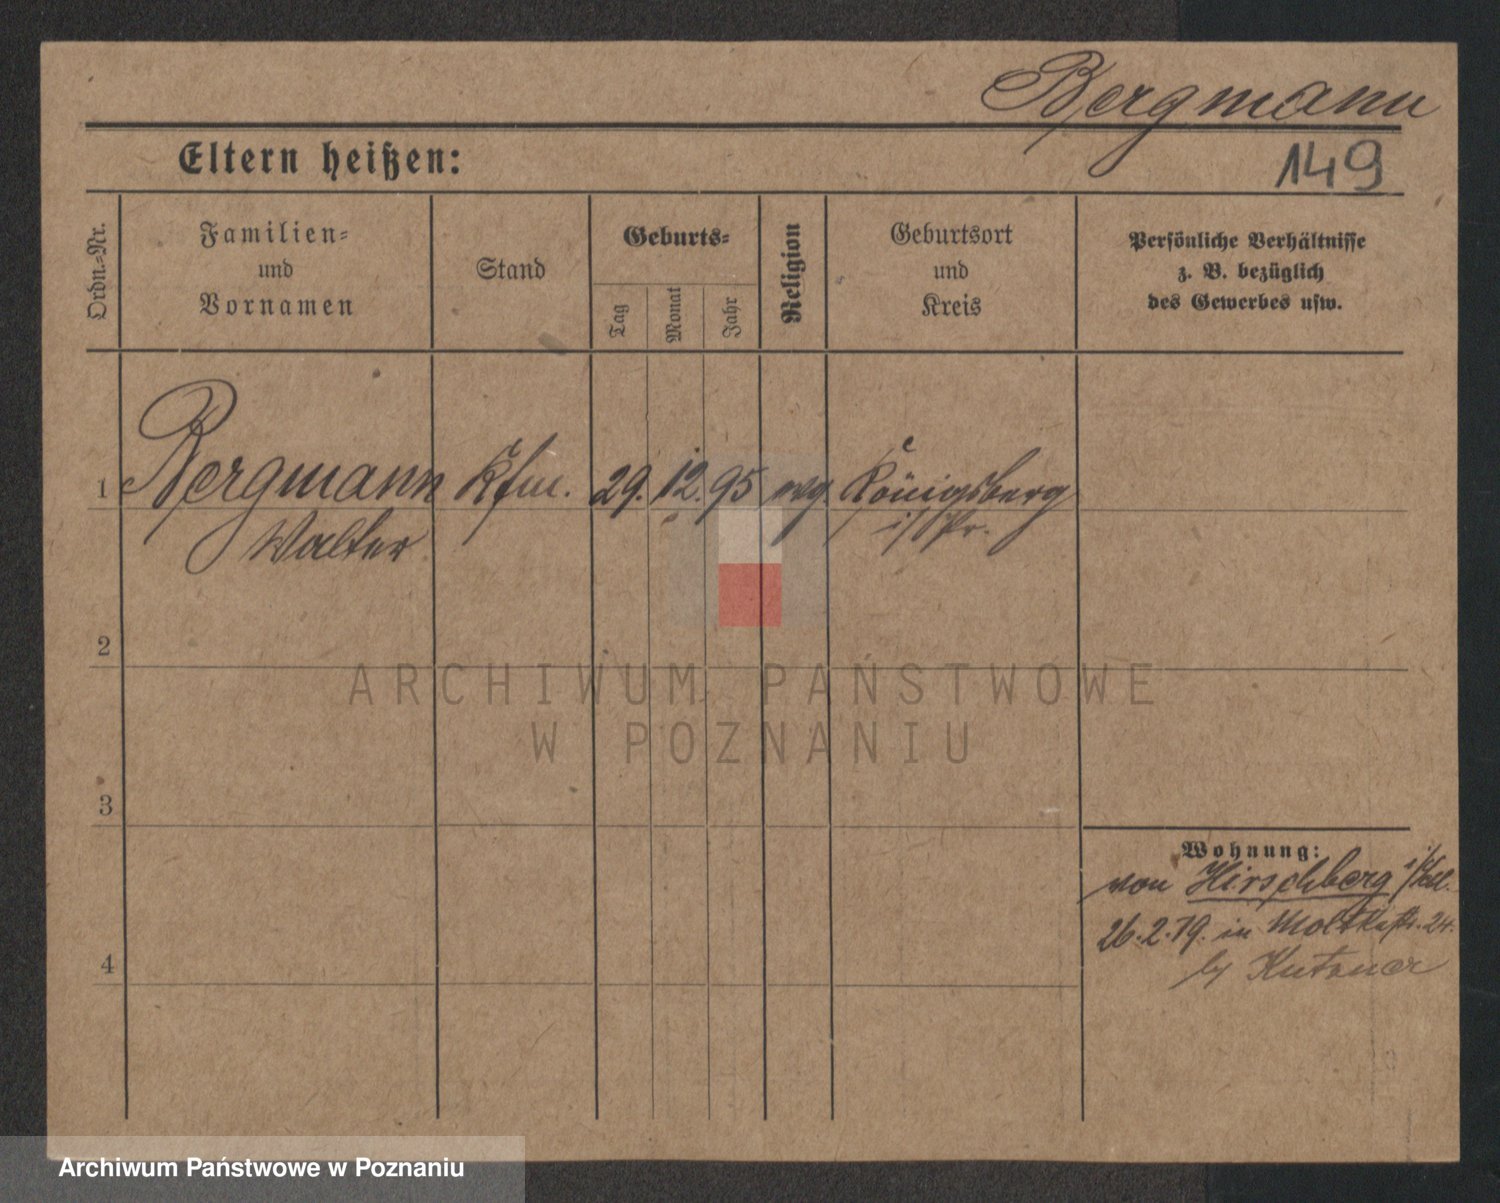 Bergmann
149
Eltern heißen:
Ordn.=Nr.
Familien=
und
Vornamen
Stand
Geburts=
Tag
Monat
Jahr
Religion
Geburtsort
und
Kreis
Persönliche Verhältnisse
z. B. bezüglich
des Gewerbes usw.
1 Bergmann Kfm. 29. 12. 95 Königsberg
Walter i/Pr.
2
3
4
Wohnung:
von Hirschberg
26.2.19. in Moltkestr. 24.
b/ Kutzner
ARCHIWUM PAŃSTWOWE
W POZNANIU
Archiwum Państwowe w Poznaniu